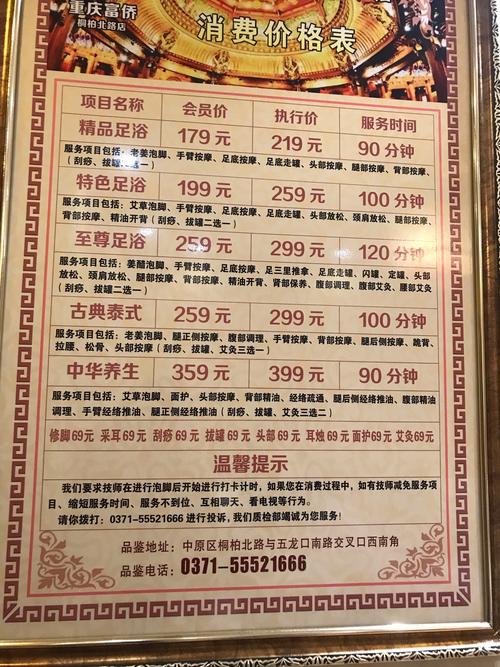 重庆富侨
桐柏北路店
消费价格表
项目名称 会员价 执行价 服务时间
精品足浴 179 元 219 元 90 分钟
服务项目包括:老姜泡脚、手臂按摩、足底按摩、足底走罐、头部按摩、腿部按摩、背部按摩、
(刮痧、拔罐二选一)
特色足浴 199 元 259 元 100 分钟
服务项目包括:艾草泡脚、手臂按摩、足底按摩、足底走罐、头部放松、颈肩放松、腿部按摩、
背部按摩、精油开背(刮痧、拔罐二选一)
至尊足浴 259 元 299 元 120 分钟
服务项目包括:姜醋泡脚、手臂按摩、足底按摩、足三里推拿、足底走罐、闪罐、定罐、头部
放松、颈肩放松、腿部按摩、背部按摩、精油开背、肾部保养、腹部调理、腹部艾灸、腰部艾灸
(刮痧、拔罐二选一)
古典泰式 259 元 299 元 100 分钟
服务项目包括:老姜泡脚、腿正侧按摩、腹部调理、手臂按摩、背部按摩、腿后侧按摩、跪背
拉腰、松骨、头部按摩(刮痧、拔罐、艾灸三选一)
中华养生 359 元 399 元 90 分钟
服务项目包括:艾草泡脚、面护、头部按摩、背部精油、经络疏通、腿后侧经络推油、腹部精油
调理、手臂经络推油、腿正侧经络推油(刮痧、拔罐、艾灸三选二)
修脚69元 采耳69元 刮痧69元 拔罐69元 头部69元 耳烛69元 面护69元 艾灸69元
温馨提示
我们要求技师在进行泡脚后开始进行打卡计时,如果您在消费过程中,如有技师减免服务项
目、缩短服务时间、服务不到位、互相聊天、看电视等行为。
请你拨打:0371-55521666 进行投诉,我们质检部竭诚为您服务!
品鉴地址:中原区桐柏北路与五龙口南路交叉口西南角
品鉴电话:0371-55521666